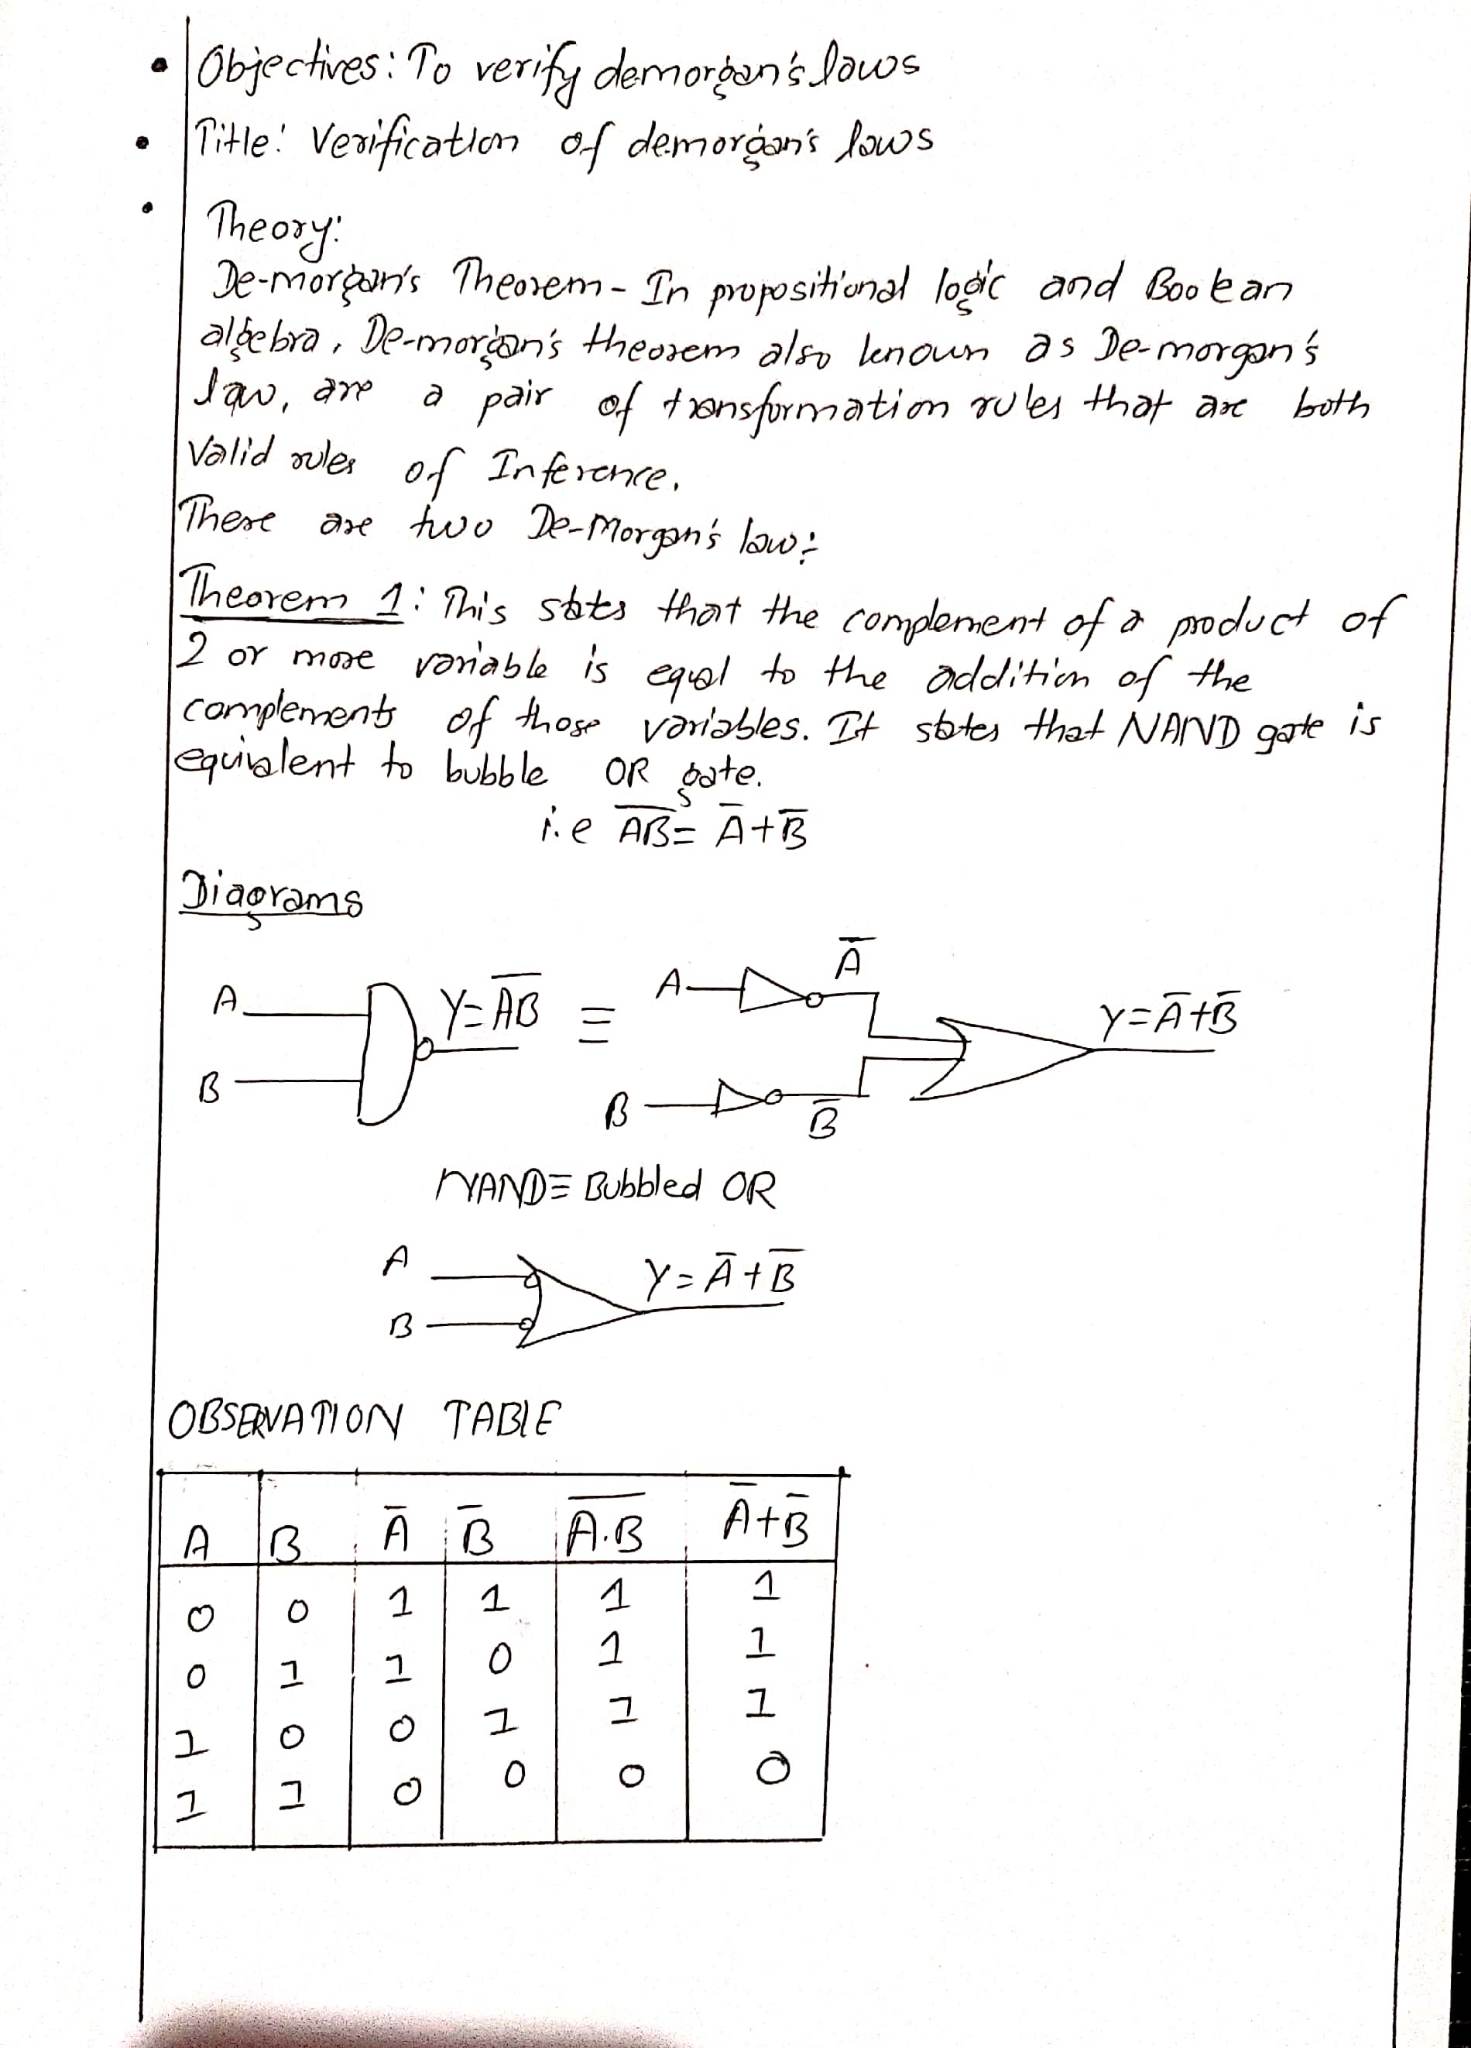 • Objectives: To verify demorgan's laws
• Title: Verification of demorgan's laws
• Theory:
De-morgan's Theorem - In propositional logic and Boolean
algebra, De-morgan's theorem also known as De-morgan's
law, are a pair of transformation rules that are both
Valid rules of Inference.
There are two De-Morgan's law:
Theorem 1: This states that the complement of a product of
2 or more variable is equal to the addition of the
complements of those variables. It states that NAND gate is
equivalent to bubble OR gate.
i.e A̅B̅ = A̅+B̅
Diagrams
A B Y=A̅B̅ ≡ A A̅ B B̅ Y=A̅+B̅
NAND≡ Bubbled OR
A Y=A̅+B̅
B
OBSERVATION TABLE
A B A̅ B̅ A̅.̅B̅ A̅+B̅
0 0 1 1 1 1
0 1 1 0 1 1
1 0 0 1 1 1
1 1 0 0 0 0